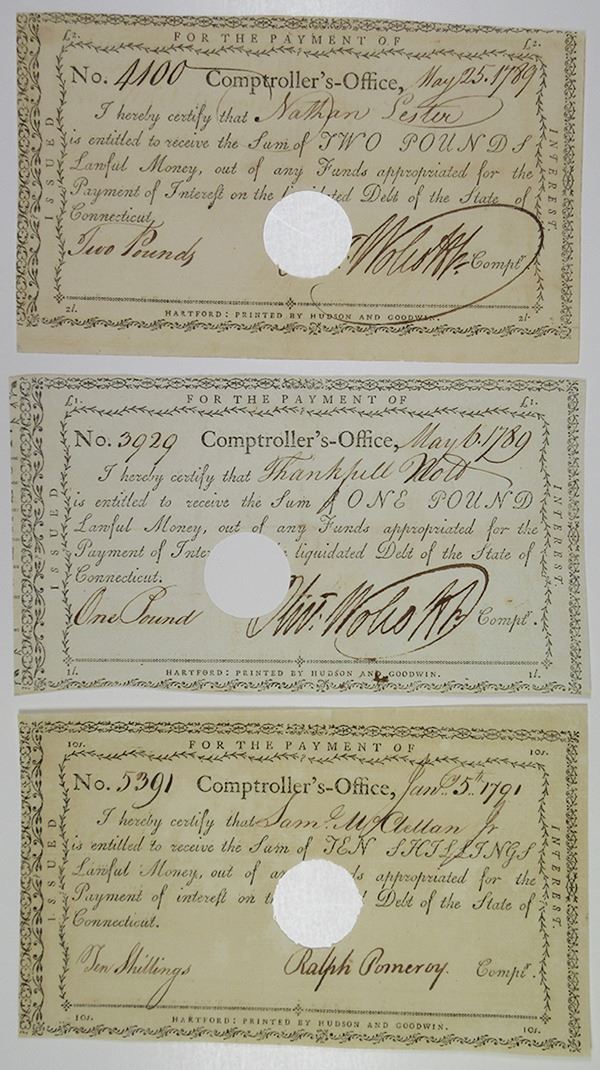 £2. FOR THE PAYMENT OF £2.
No. 4100 Comptroller's-Office, May 25. 1789
I hereby certify that Nathan Lester
is entitled to receive the Sum of TWO POUNDS
Lawful Money, out of any Funds appropriated for the
Payment of Interest on the liquidated Debt of the State of
Connecticut,
Two Pounds Wolcott Jr. Comptr.
ISSUED
INTEREST.
2l. HARTFORD: PRINTED BY HUDSON AND GOODWIN. 2l.
£1. FOR THE PAYMENT OF £1.
No. 3929 Comptroller's-Office, May 6. 1789
I hereby certify that Thankfull
is entitled to receive the Sum of ONE POUND
Lawful Money, out of any Funds appropriated for the
Payment of Inte liquidated Debt of the State of
Connecticut.
One Pound Olivr. Wolcott Jr. Comptr.
ISSUED
INTEREST.
1l. HARTFORD: PRINTED BY HUDSON AND GOODWIN. 1l.
10s. FOR THE PAYMENT OF 10s.
No. 5391 Comptroller's-Office, Jany. 5th. 1791
I hereby certify that Saml. McClellan Jr
is entitled to receive the Sum of TEN SHILLINGS
Lawful Money, out of an ds appropriated for the
Payment of interest on th Debt of the State of
Connecticut.
Ten Shillings Ralph Pomeroy. Comptr.
ISSUED
INTEREST.
10s. HARTFORD: PRINTED BY HUDSON AND GOODWIN. 10s.